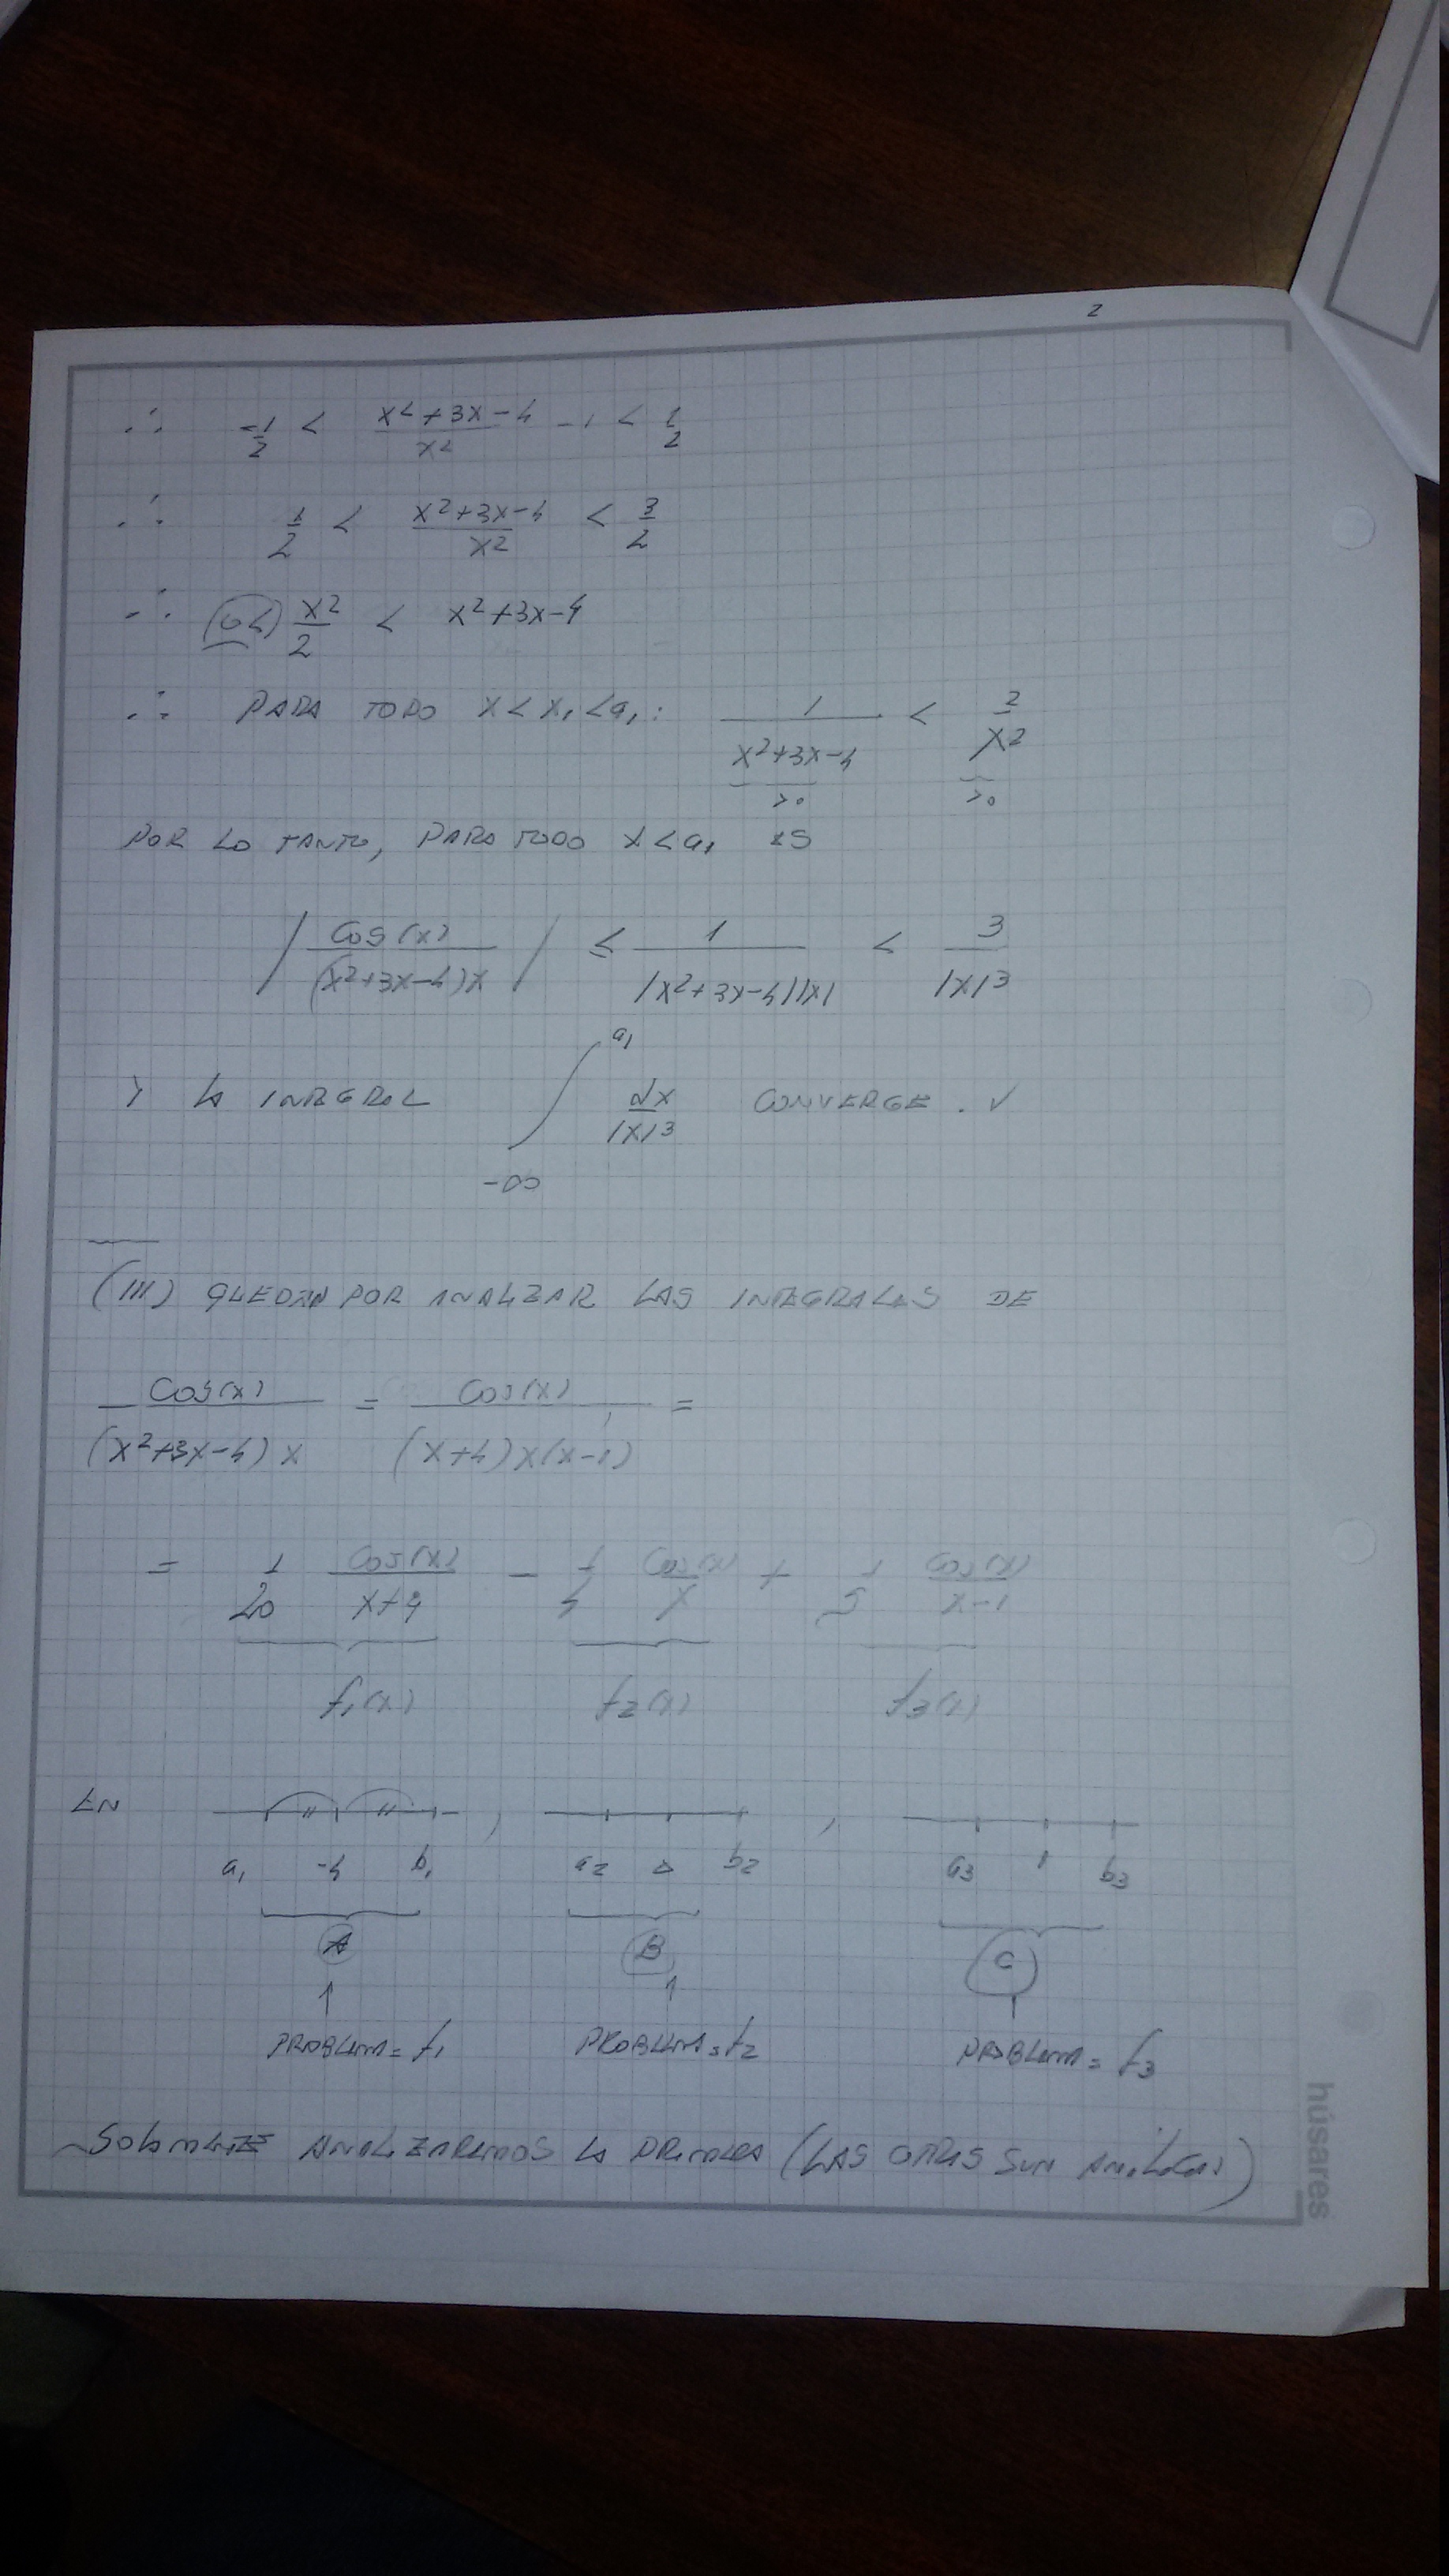 2
∴ -1/2 < (x²+3x-4)/x² - 1 < 1/2
∴ 1/2 < (x²+3x-4)/x² < 3/2
∴ (0<) x²/2 < x²+3x-4
∴ PARA TODO x < x₁ < a₁ : 1/(x²+3x-4) < 2/x²
>0 >0
POR LO TANTO, PARA TODO x < a₁ ES
|cos(x)/((x²+3x-4)x)| ≤ 1/(|x²+3x-4||x|) < 3/|x|³
Y LA INTEGRAL ∫_{-∞}^{a₁} dx/|x|³ CONVERGE. ✓
(III) QUEDAN POR ANALIZAR LAS INTEGRALES DE
cos(x)/((x²+3x-4)x) = cos(x)/((x+4)x(x-1)) =
= 1/20 cos(x)/(x+4) - 1/4 cos(x)/x + 1/5 cos(x)/(x-1)
f₁(x) f₂(x) f₃(x)
EN , ,
a₁ -4 b₁ a₂ 0 b₂ a₃ 1 b₃
A B C
PROBLEMA = f₁ PROBLEMA = f₂ PROBLEMA = f₃
SOLAMENTE ANALIZAREMOS LA PRIMERA (LAS OTRAS SON ANÁLOGAS)
húsares